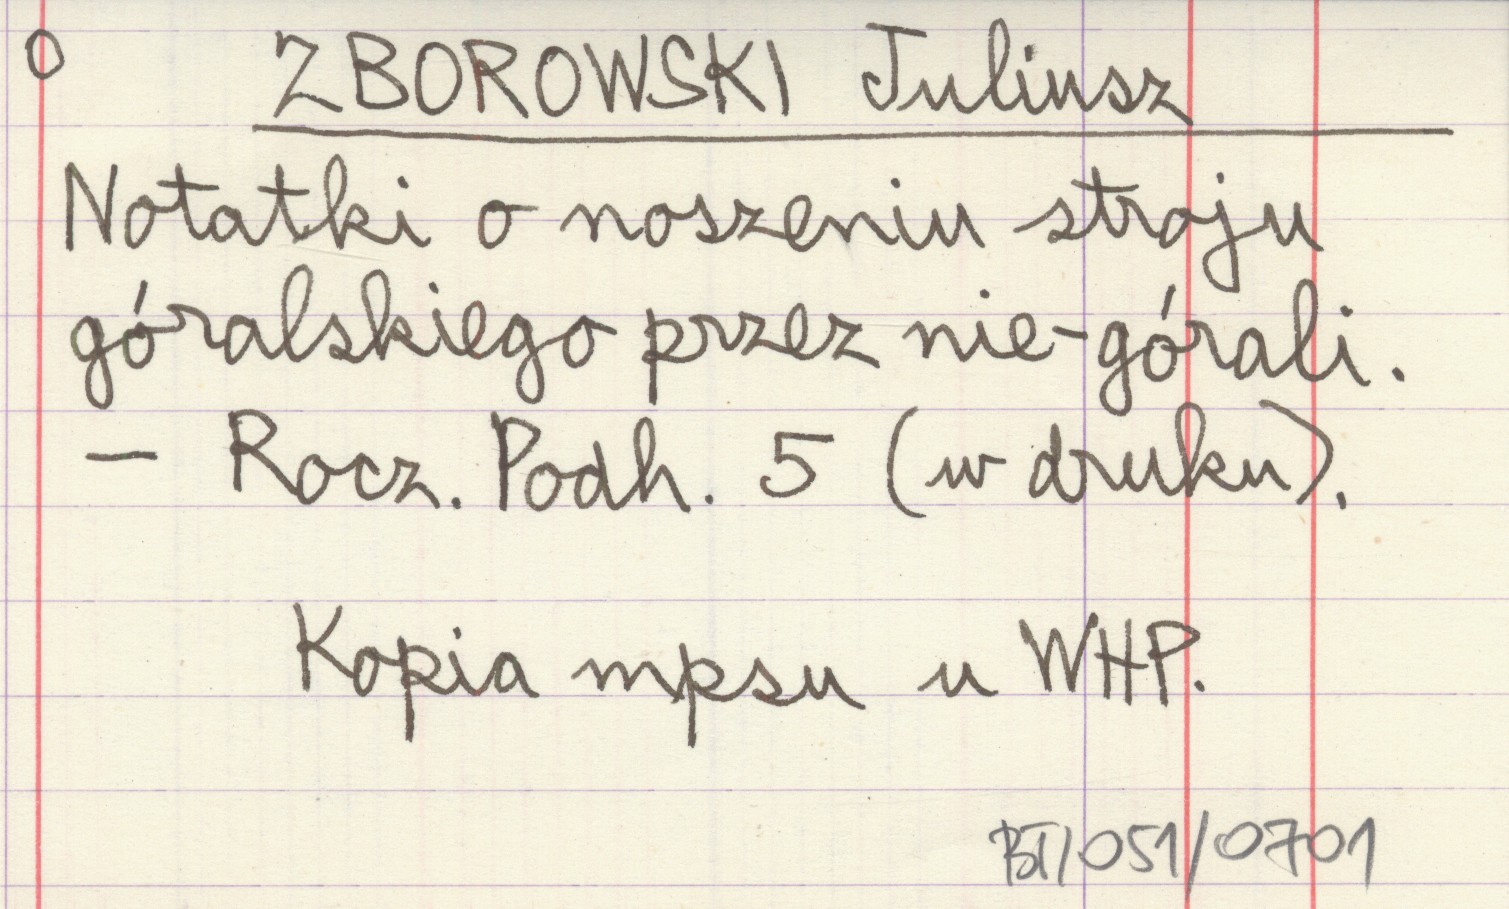 O ZBOROWSKI Juliusz
Notatki o noszeniu stroju
góralskiego przez nie-górali.
– Rocz. Podh. 5 (w druku).
Kopia mpsu u WHP.
BT/051/0701